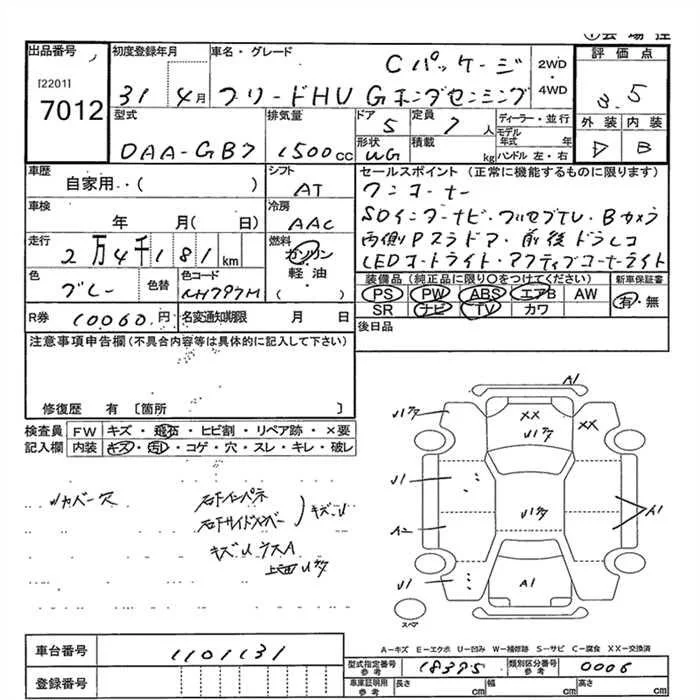 出品番号
[2201]
7012
初度登録年月
31 4月
車名・グレード
Cパッケージ
フリードHV Gホンダセンシング
2WD
・
4WD
評価点
3.5
外装 内装
D B
型式
DAA-GB7
排気量
1500cc
ドア
5
定員
7人
形状
WG
積載
kg
ディーラー・並行
モデル
年式 年
ハンドル 左・右
車歴
自家用・( )
シフト
AT
車検
年 月( 日)
冷房
AAC
走行
2万4千181km
燃料
ガソリン
軽油
( )
色
ブルー
色替
色コード
R券
10060円
名変通知期限 月 日
セールスポイント(正常に機能するものに限ります)
ワンオーナー
SDインターナビ・フルセグTV・Bカメラ
両側Pスラドア・前後ドラレコ
LEDオートライト・アクティブコーナーライト
装備品(純正品に限り○をつけてください)
PS PW ABS エアB AW
SR ナビ TV カワ
新車保証書
有・無
後日品
注意事項申告欄(不具合内容等は具体的に記入して下さい)
修復歴 有 [箇所 ]
検査員 FW キズ・飛石・ヒビ割・リペア跡・×要
記入欄 内装 キズ・汚レ・コゲ・穴・スレ・キレ・破レ
カバー穴
キズU
A1
XX
XX
U1
A2
U1
A1
A1
スペア
A-キズ E-エクボ U-凹み W-補修跡 S-サビ C-腐食 XX-交換済
車台番号
1101131
登録番号
型式指定番号
参考
18395
類別区分番号
参考
0006
車庫証明用
参考
長さ cm
幅 cm
高さ cm